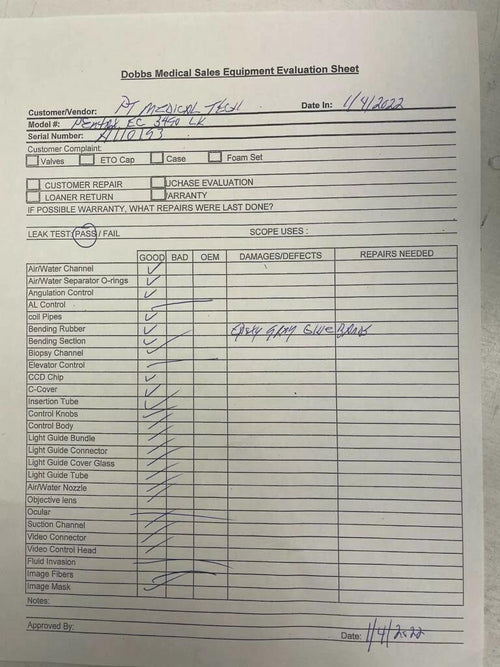 Dobbs Medical Sales Equipment Evaluation Sheet
Customer/Vendor: PJ MEDICAL TECH Date In: 1/4/2022
Model #: PENTAX EC 3490 LK
Serial Number: A110193
Customer Complaint:
Valves ETO Cap Case Foam Set
CUSTOMER REPAIR UCHASE EVALUATION
LOANER RETURN ARRANTY
IF POSSIBLE WARRANTY, WHAT REPAIRS WERE LAST DONE?
LEAK TEST: PASS / FAIL SCOPE USES :
GOOD BAD OEM DAMAGES/DEFECTS REPAIRS NEEDED
Air/Water Channel
Air/Water Separator O-rings
Angulation Control
AL Control
coil Pipes
Bending Rubber Epoxy Gray Glue Bands
Bending Section
Biopsy Channel
Elevator Control
CCD Chip
C-Cover
Insertion Tube
Control Knobs
Control Body
Light Guide Bundle
Light Guide Connector
Light Guide Cover Glass
Light Guide Tube
Air/Water Nozzle
Objective lens
Ocular
Suction Channel
Video Connector
Video Control Head
Fluid Invasion
Image Fibers
Image Mask
Notes:
Approved By: Date: 1/4/2022